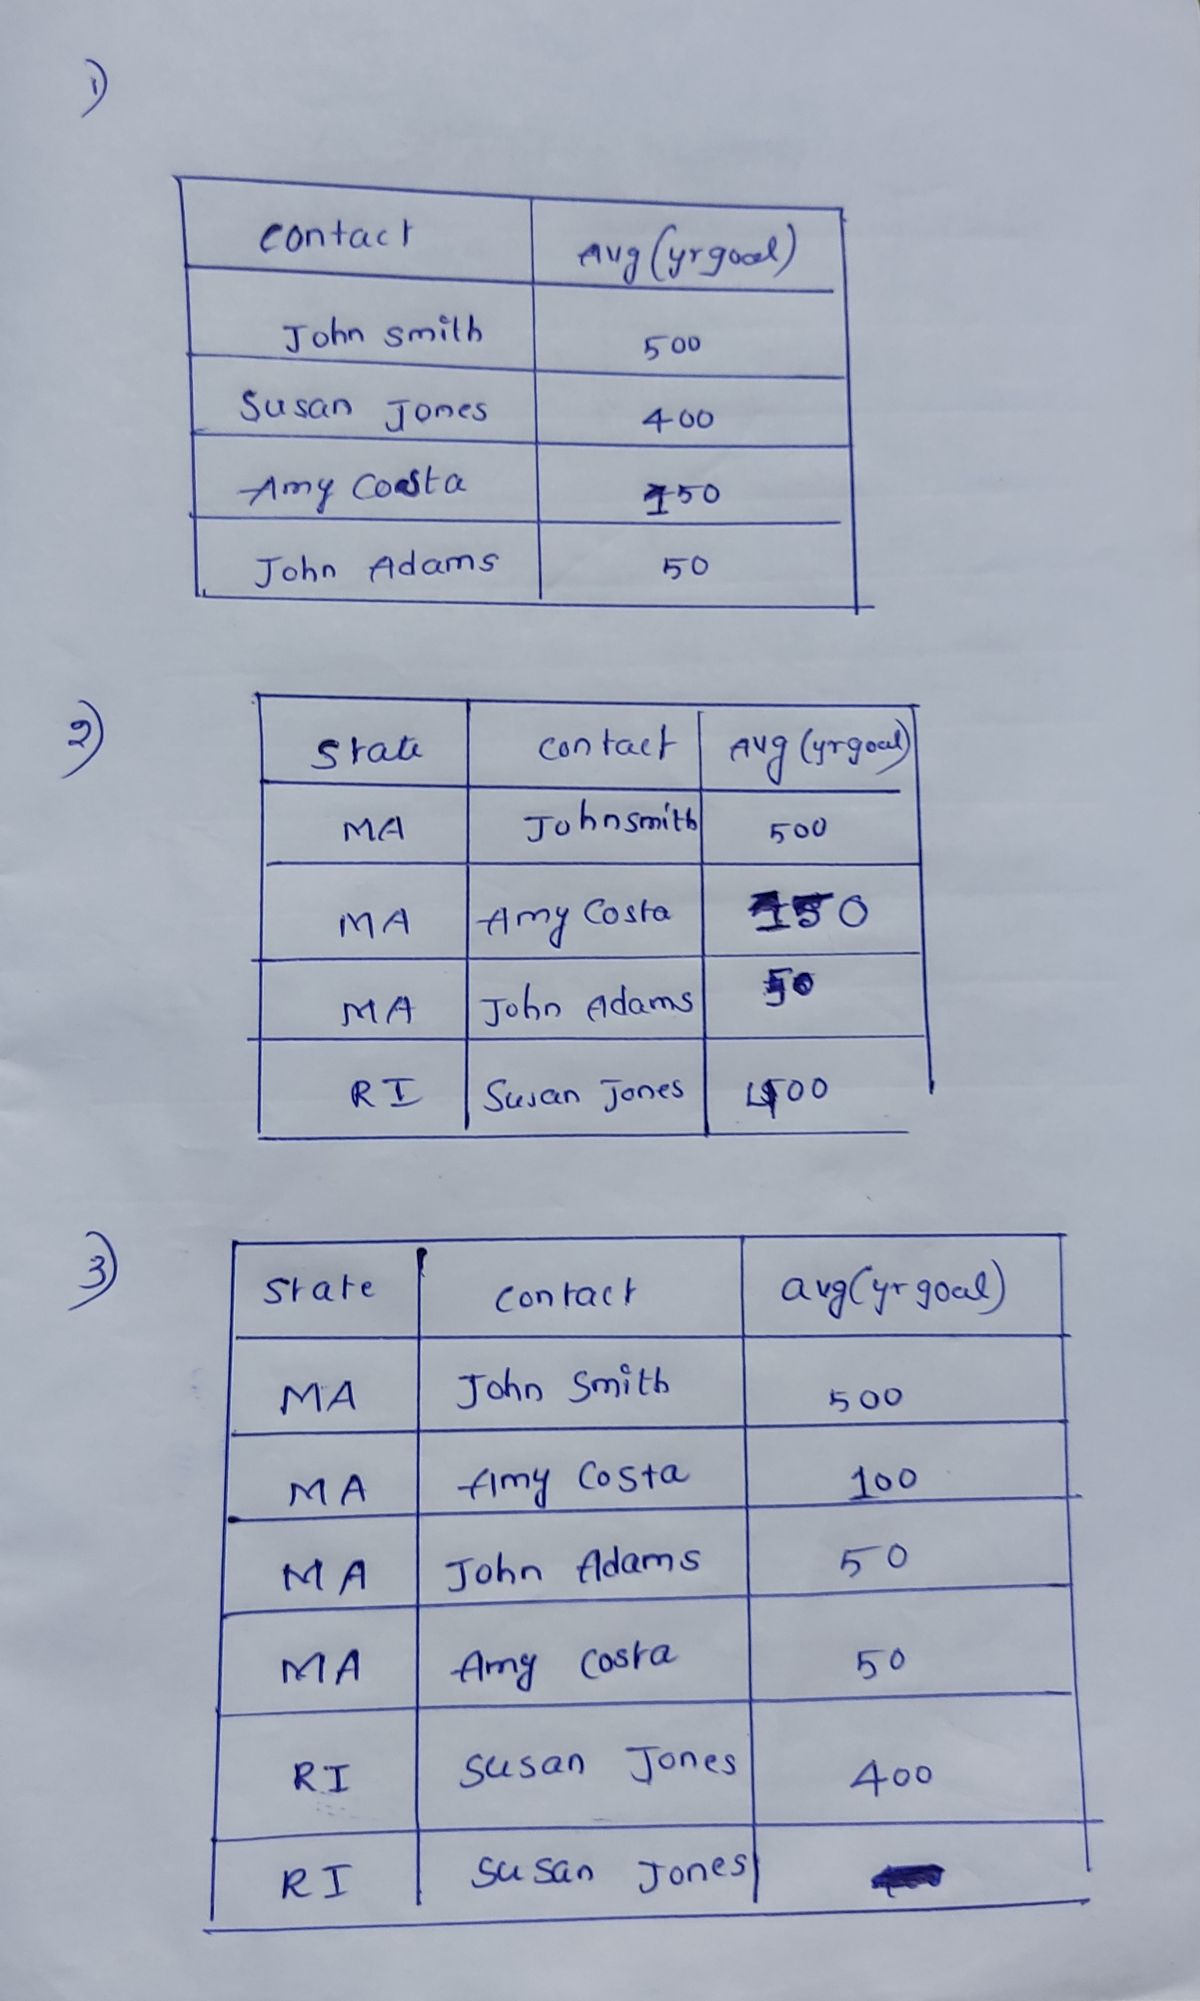 1)
contact Avg (yrgoal)
John smith 500
Susan Jones 400
Amy Costa 150
John Adams 50
2)
State contact Avg (yrgoal)
MA John smith 500
MA Amy Costa 150
MA John Adams 50
RI Susan Jones 400
3)
State contact avg(yr goal)
MA John Smith 500
MA Amy Costa 100
MA John Adams 50
MA Amy Costa 50
RI Susan Jones 400
RI Susan Jones